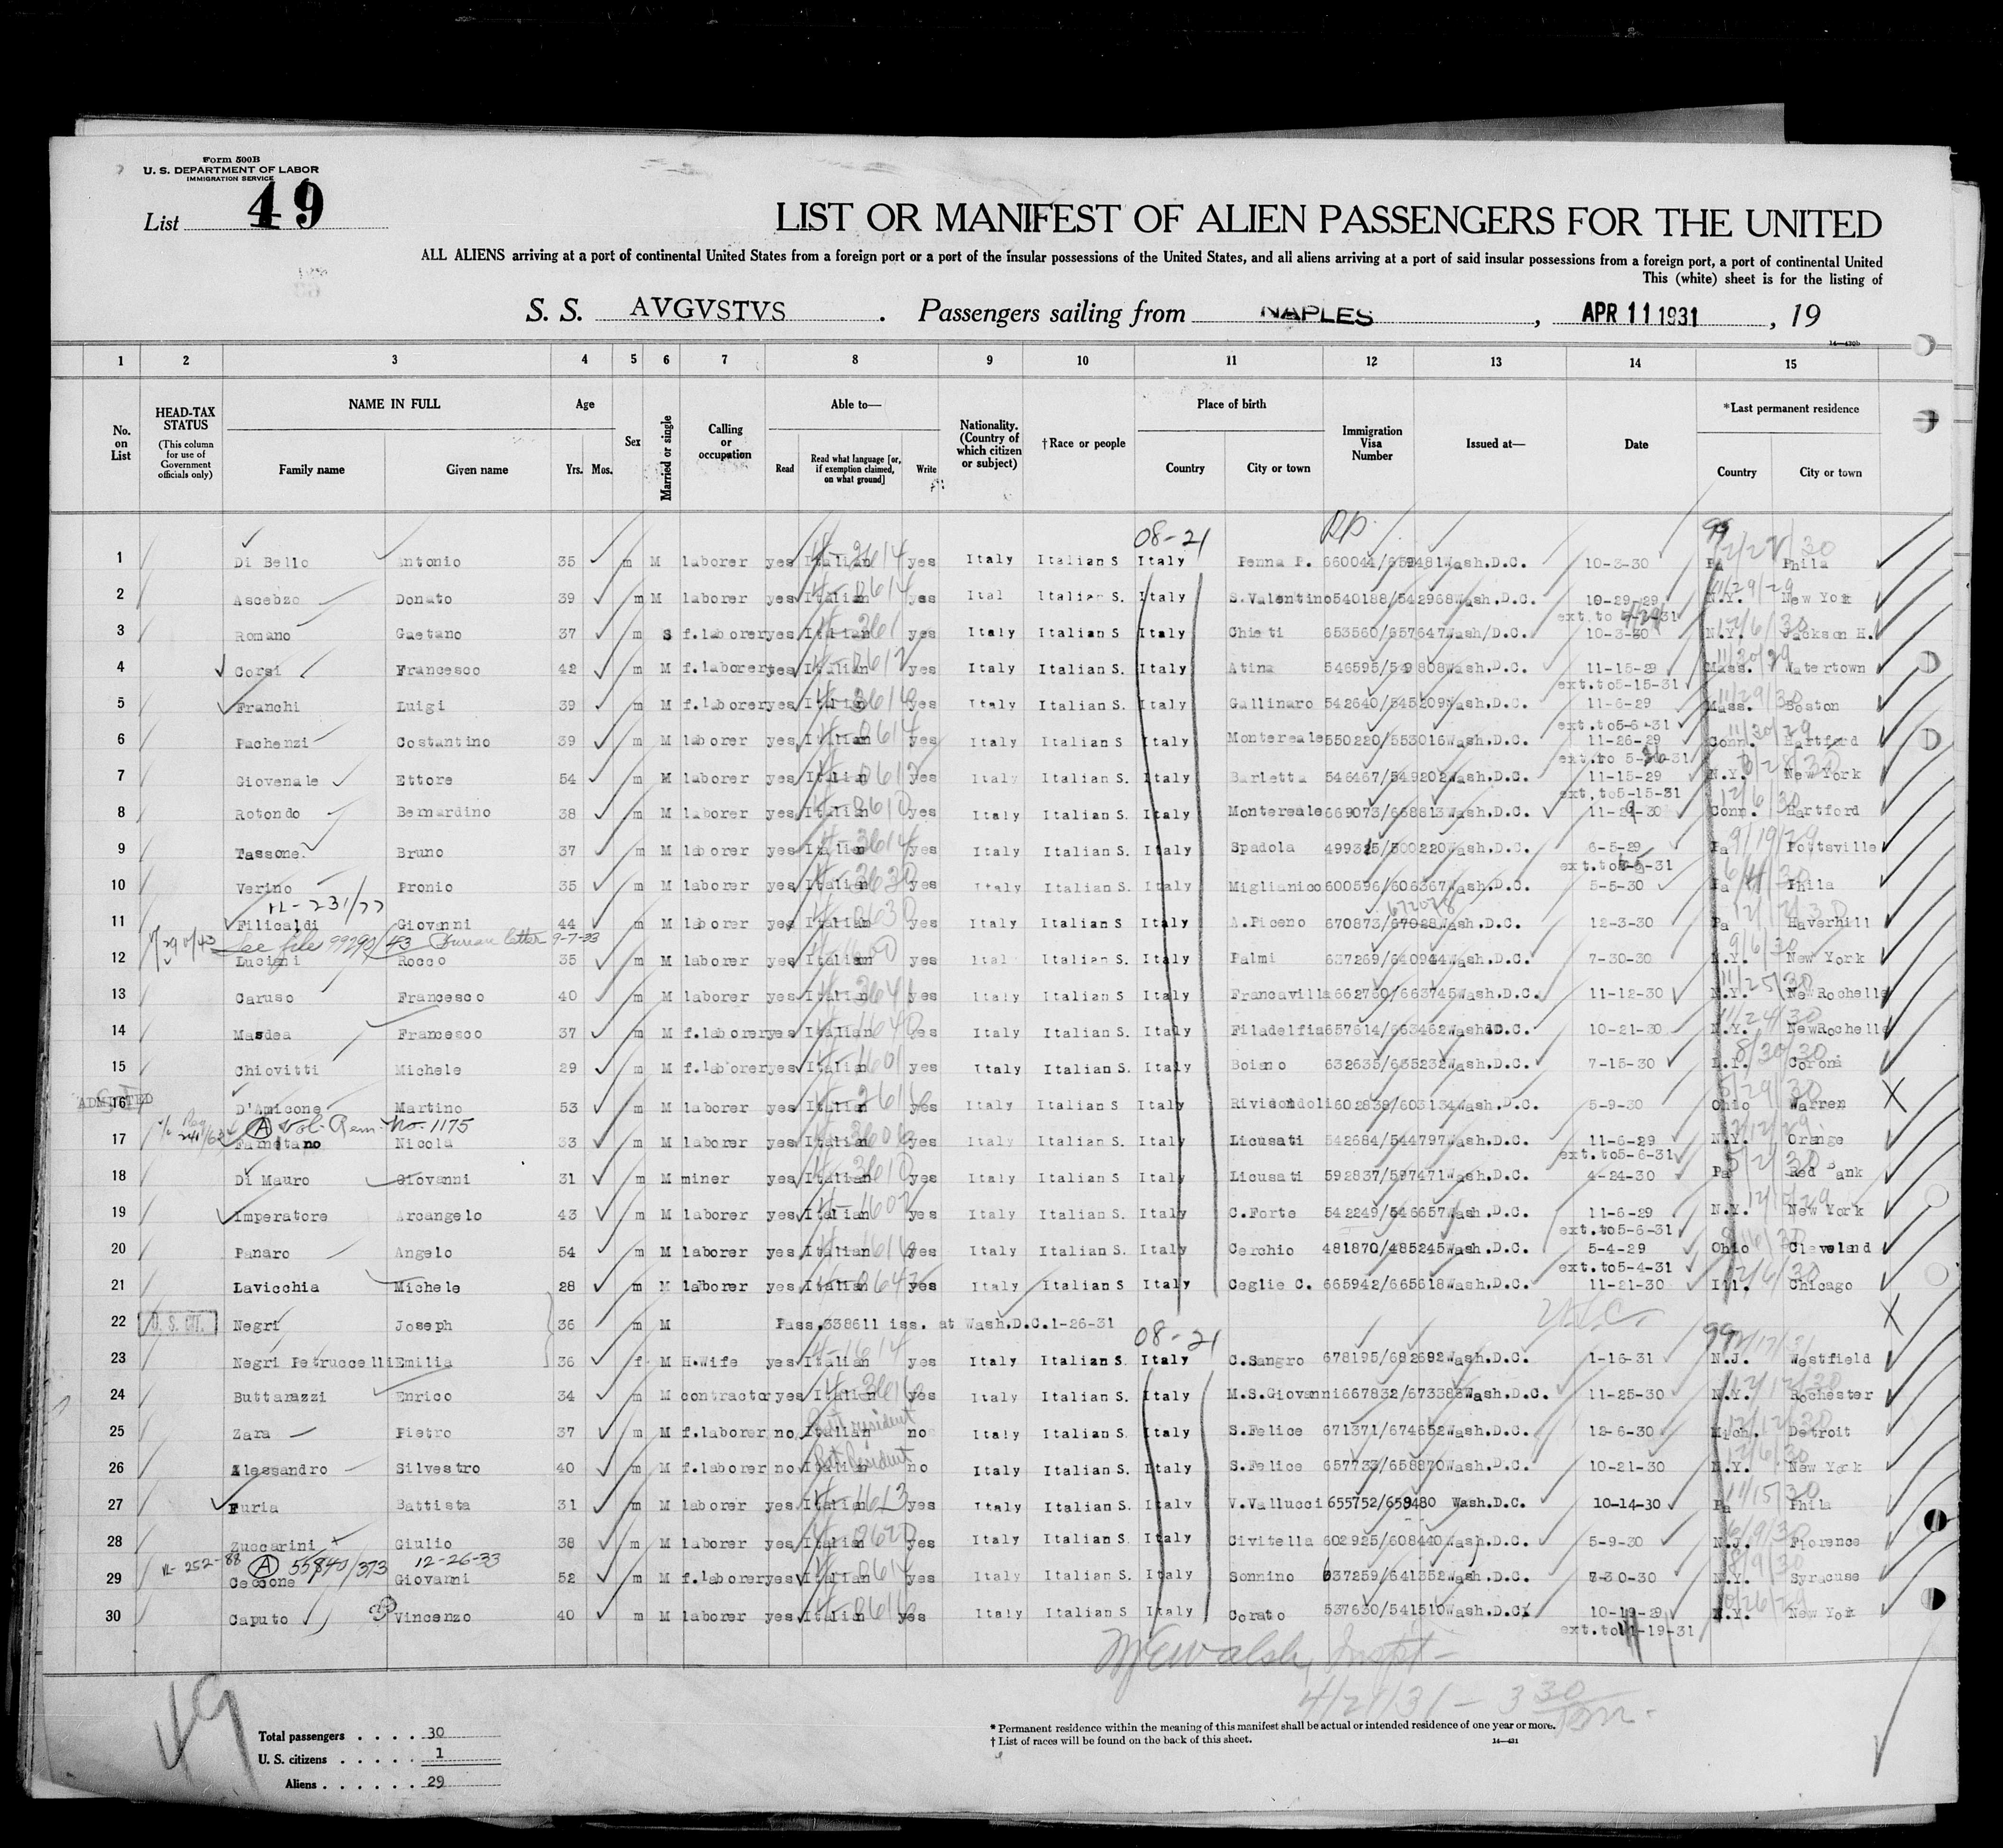 Form 500B
U. S. DEPARTMENT OF LABOR
IMMIGRATION SERVICE
List 49
LIST OR MANIFEST OF ALIEN PASSENGERS FOR THE UNITED
ALL ALIENS arriving at a port of continental United States from a foreign port or a port of the insular possessions of the United States, and all aliens arriving at a port of said insular possessions from a foreign port, a port of continental United
This (white) sheet is for the listing of
S. S. AVGVSTVS . Passengers sailing from NAPLES , APR 11 1931 , 19
14—430b
1 2 3 4 5 6 7 8 9 10 11 12 13 14 15
No. on List
HEAD-TAX STATUS (This column for use of Government officials only)
NAME IN FULL
Family name Given name
Age
Yrs. Mos.
Sex
Married or single
Calling or occupation
Able to—
Read Read what language [or, if exemption claimed, on what ground] Write
Nationality. (Country of which citizen or subject)
†Race or people
Place of birth
Country City or town
Immigration Visa Number
Issued at—
Date
*Last permanent residence
Country City or town
08-21 99
1 Di Bello Antonio 35 m M laborer yes Italian yes Italy Italian S Italy Penna P. 660044/659481 Wash.D.C. 10-3-30 Pa Phila
2 Ascebzo Donato 39 m M laborer yes Italian yes Ital Italian S. Italy S.Valentino 540188/542968 Wash.D.C. 10-29-29 N.Y. New York
ext.to
3 Romano Gaetano 37 m S f.laborer yes Italian yes Italy Italian S Italy Chieti 653560/657647 Wash/D.C. 10-3-30 N.Y. Jackson H.
4 Corsi Francesco 42 m M f.laborer yes Italian yes Italy Italian S Italy Atina 546595/549808 Wash.D.C. 11-15-29 Mass. Watertown
ext.to5-15-31
5 Franchi Luigi 39 m M f.laborer yes Italian yes Italy Italian S Italy Gallinaro 542640/545209 Wash.D.C. 11-6-29 Mass. Boston
ext.to5-6-31
6 Pachenzi Costantino 39 m M laborer yes Italian yes Italy Italian S Italy Montereale 550220/553016 Wash.D.C. 11-26-29 Conn. Hartford
ext.to 5-26-31
7 Giovenale Ettore 54 m M laborer yes Italian yes Italy Italian S Italy Barletta 546467/549202 Wash.D.C. 11-15-29 N.Y. New York
ext.to5-15-31
8 Rotondo Bernardino 38 m M laborer yes Italian yes Italy Italian S. Italy Montereale 669073/668813 Wash.D.C. Conn. Hartford
9 Tassone Bruno 37 m M laborer yes Italian yes Italy Italian S. Italy Spadola Wash.D.C. 6-5-29 Pa Pottsville
ext.to
10 Verino Pronio 35 m M laborer yes Italian yes Italy Italian S. Italy Miglianico 600596/606367 Wash.D.C. 5-5-30 Pa Phila
11 Filicaldi Giovanni 44 m M laborer yes Italian yes Italy Italian S Italy A.Piceno 670873/67028 Wash.D.C. 12-3-30 Pa Haverhill
See file 99290/43 Bureau letter 9-7-33
12 Luciani Rocco 35 m M laborer yes Italian yes Ital Italian S. Italy Palmi 637269/640944 Wash.D.C. 7-30-30 N.Y. New York
13 Caruso Francesco 40 m M laborer yes Italian yes Italy Italian S Italy Francavilla 662760/663745 Wash.D.C. 11-12-30 N.Y. New Rochelle
14 Masdea Francesco 37 m M f.laborer yes Italian yes Italy Italian S. Italy Filadelfia 657614/663462 Wash.D.C. 10-21-30 N.Y. NewRochelle
15 Chiovitti Michele 29 m M f.laborer yes Italian yes Italy Italian S. Italy Boiano 632635/635232 Wash.D.C. 7-15-30 Corona
ADMITTED
16 D'Amicone Martino 53 m M laborer yes Italian yes Italy Italian S Italy Rivisondoli 602838/603134 Wash.D.C. 5-9-30 Ohio Warren
(A) Vol. Rem. No. 1175
17 Fametano Nicola 33 m M laborer yes Italian yes Italy Italian S. Italy Licusati 542684/544797 Wash.D.C. 11-6-29 N.Y. Orange
ext.to5-6-31
18 Di Mauro Giovanni 31 m M miner yes Italian yes Italy Italian S Italy Licusati 592837/597471 Wash.D.C. 4-24-30 Pa Red Bank
19 Imperatore Arcangelo 43 m M laborer yes Italian yes Italy Italian S. Italy C.Forte 542249/546657 Wash.D.C. 11-6-29 N.Y. New York
ext.to5-6-31
20 Panaro Angelo 54 m M laborer yes Italian yes Italy Italian S. Italy Cerchio 481870/485245 Wash.D.C. 5-4-29 Ohio Cleveland
ext.to5-4-31
21 Lavicchia Michele 28 m M laborer yes Italian yes Italy Italian S Italy Ceglie C. 665942/665618 Wash.D.C. 11-21-30 Ill. Chicago
22 U. S. CIT. Negri Joseph 36 m M Pass.338611 iss. at Wash.D.C.1-26-31
08-21 99
23 Negri Petruccelli Emilia 36 f M H.Wife yes Italian yes Italy Italian S. Italy C.Sangro 678195/682692 Wash.D.C. 1-16-31 N.J. Westfield
24 Buttarazzi Enrico 34 m M contractor yes Italian yes Italy Italian S. Italy M.S.Giovanni 667832/673388 Wash.D.C. 11-25-30 N.Y. Rochester
25 Zara Pietro 37 m M f.laborer no Italian no Italy Italian S. Italy S.Felice 671371/674652 Wash.D.C. 12-6-30 Mich. Detroit
26 Alessandro Silvestro 40 m M f.laborer no Italian no Italy Italian S. Italy S.Felice 657733/658870 Wash.D.C. 10-21-30 N.Y. New York
27 Furia Battista 31 m M laborer yes Italian yes Italy Italian S. Italy V.Vallucci 655752/659480 Wash.D.C. 10-14-30 Pa Phila
28 Zuccarini Giulio 38 m M laborer yes Italian yes Italy Italian S. Italy Civitella 602925/608440 Wash.D.C. 5-9-30 N.J. Florence
(A) 55840/373 12-26-33
29 Ceccone Giovanni 52 m M f.laborer yes Italian yes Italy Italian S. Italy Sonnino 637259/641352 Wash.D.C. 7-30-30 N.Y. Syracuse
30 Caputo Vincenzo 40 m M laborer yes Italian yes Italy Italian S Italy Corato 537630/541510 Wash.D.C. 10-19-29 N.Y. New York
49
Total passengers . . . . 30
U. S. citizens . . . . . 1
Aliens . . . . . . 29
* Permanent residence within the meaning of this manifest shall be actual or intended residence of one year or more.
† List of races will be found on the back of this sheet.
14—431